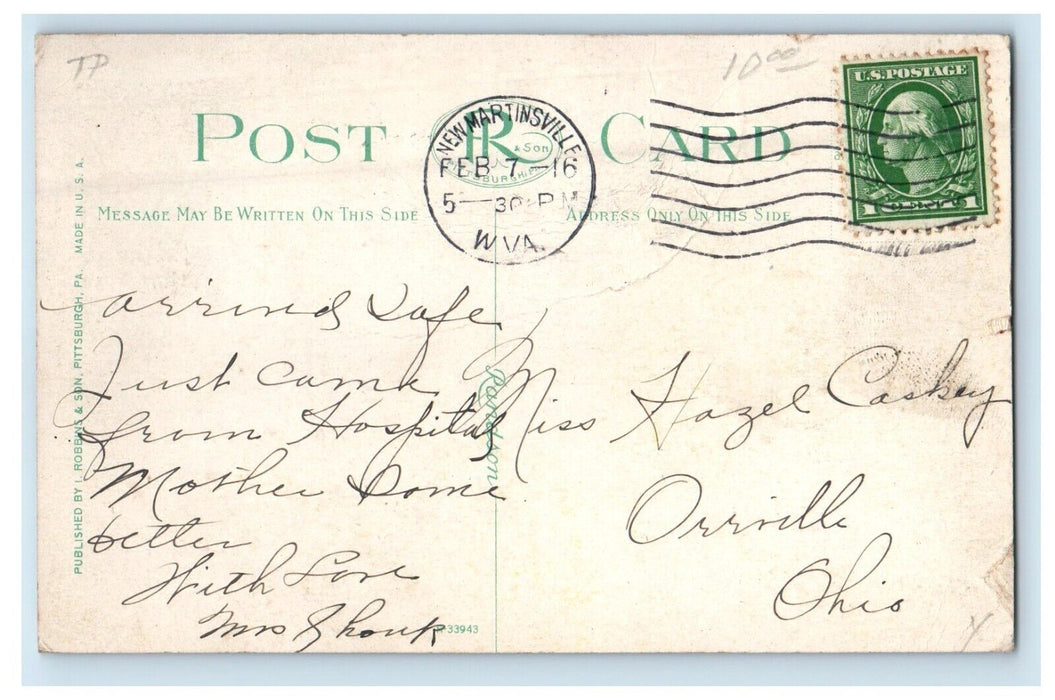 TP
10 00
U.S. POSTAGE
1 1
POST CARD
R
& SON
PITTSBURGH, PA.
NEW MARTINSVILLE
FEB 7 - 16
5 - 30 P M
W. VA.
MESSAGE MAY BE WRITTEN ON THIS SIDE
ADDRESS ONLY ON THIS SIDE
PUBLISHED BY I. ROBBINS & SON, PITTSBURGH, PA. MADE IN U. S. A.
arrived Safe
Just came
from Hospital
Mother Some
better
With Love
Mrs Shouk
Robbins & Son
Miss Hazel Caskey
Orrville
Ohio
R-33943